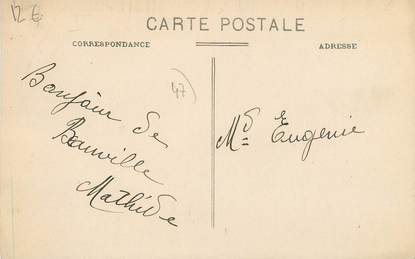 12 €
CARTE POSTALE
CORRESPONDANCE
ADRESSE
47)
Bonjour de
Bauville
Mathilde
Md Eugenie